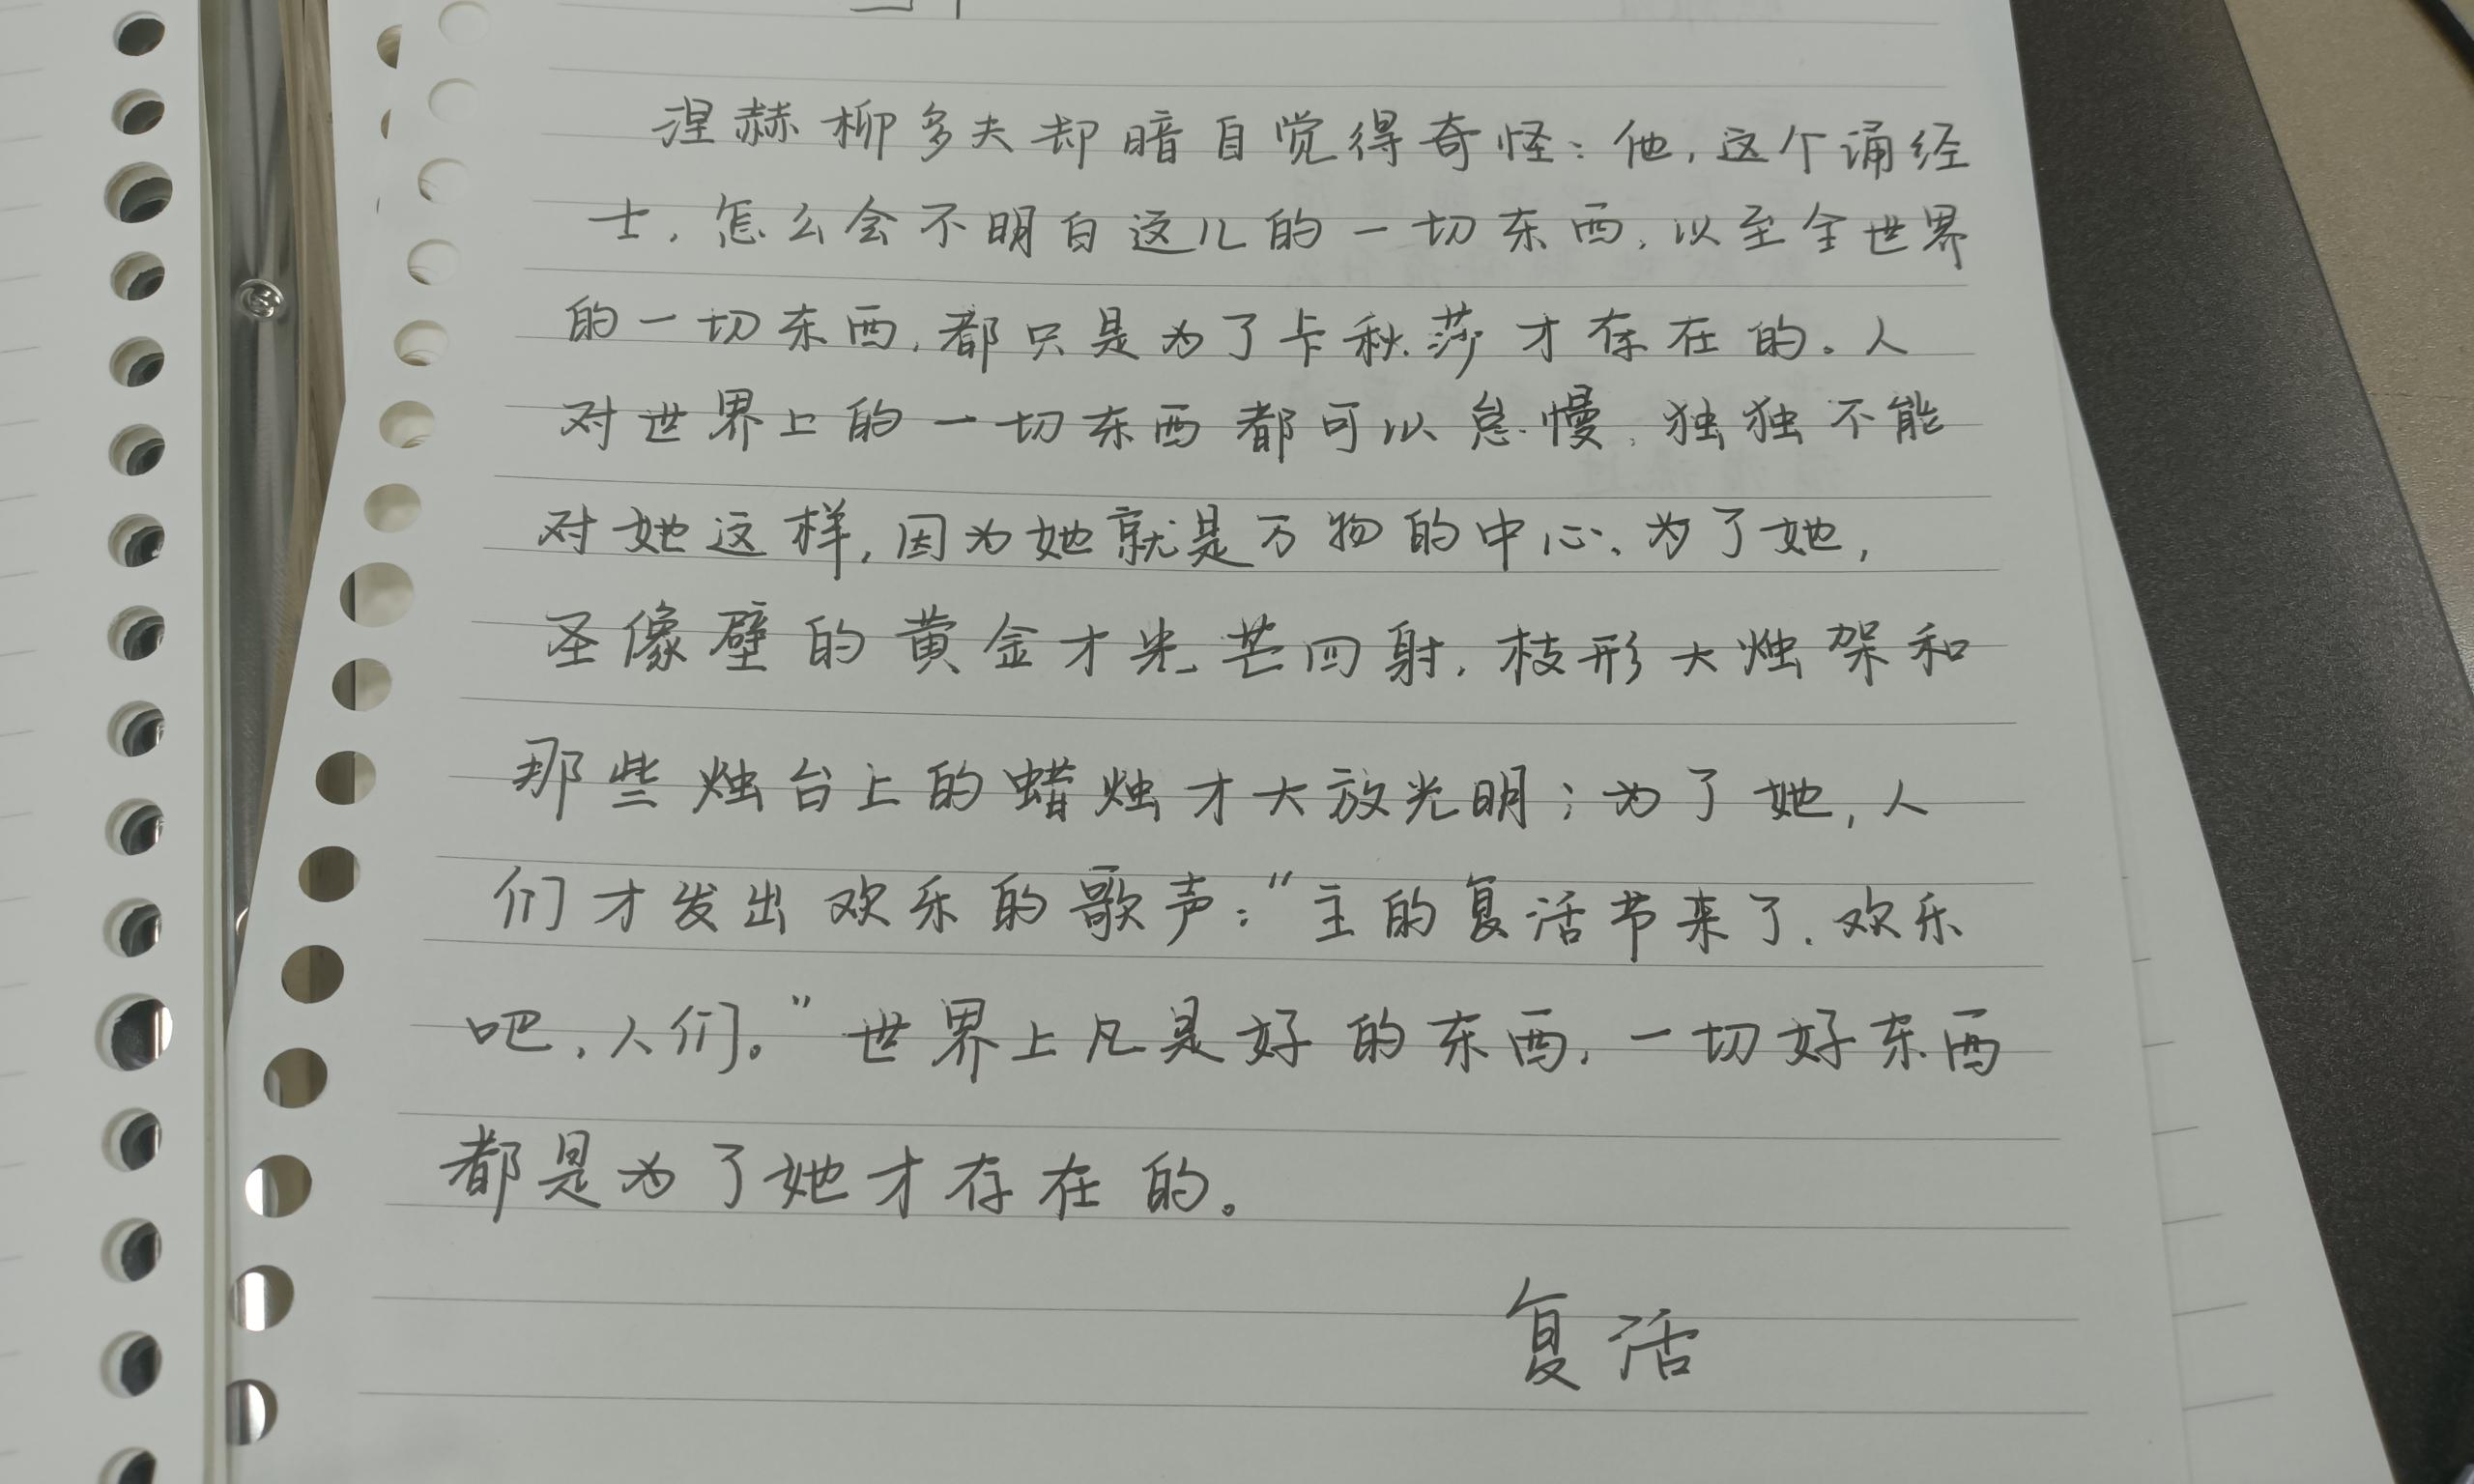 涅赫柳多夫却暗自觉得奇怪：他，这个诵经
士，怎么会不明白这儿的一切东西，以至全世界
的一切东西，都只是为了卡秋莎才存在的。人
对世界上的一切东西都可以怠慢，独独不能
对她这样，因为她就是万物的中心、为了她，
圣像壁的黄金才光芒四射，枝形大烛架和
那些烛台上的蜡烛才大放光明；为了她，人
们才发出欢乐的歌声：“主的复活节来了，欢乐
吧，人们。”世界上凡是好的东西，一切好东西
都是为了她才存在的。
复活